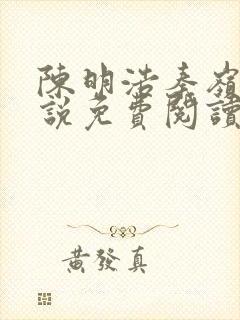 陳明浩秦嶺
說免費閱讀
黃發真